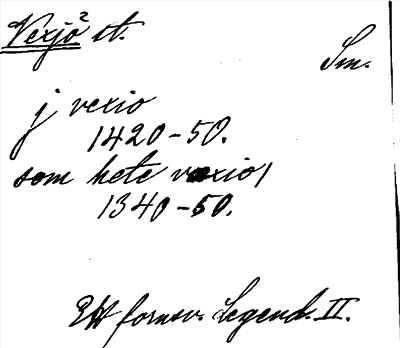 Vexjö² st.
Sm.
j vexio
1420-50.
som hete vexio/
1340-50.
Ett fornsv. Legend. II.